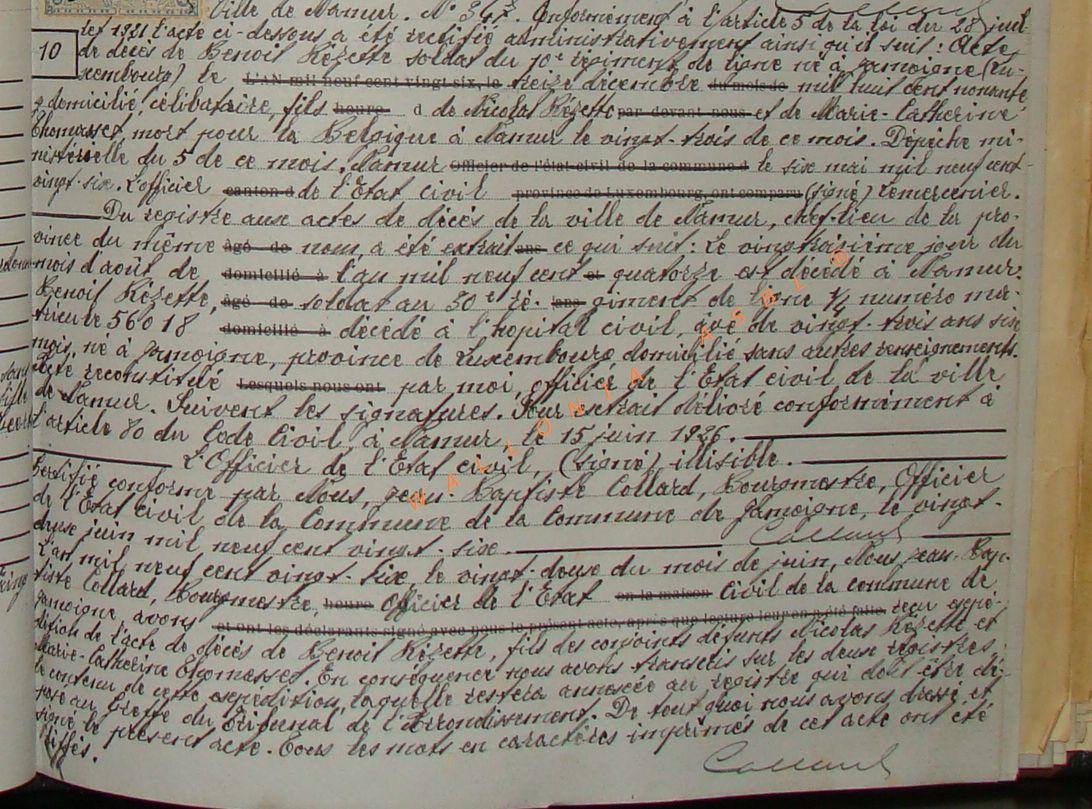 Ville de Namur. N° 347. Conformément à l'article 5 de la loi du 28 juil
let 1921 l'acte ci-dessous a été rectifié administrativement ainsi qu'il suit : Acte
10
de décès de Benoit Rézette soldat du 10e régiment de ligne né à Jamoigne (Lu-
xembourg) le L'AN mil neuf cent vingt six, le treize décembre du mois de mil huit cent nonante
y domicilié, célibataire, fils heure d de Nicolas Rézette par-devant nous et de Marie-Catherine
Thomasset, mort pour la Belgique à Namur le vingt-trois de ce mois. Dépêche mi-
nistérielle du 5 de ce mois. Namur Officier de l'état civil de la commune d le six mai mil neuf cent
vingt-six. L'officier canton d de l'Etat Civil province de Luxembourg, ont comparu (signé) Lemercinier.
Du registre aux actes de décès de la ville de Namur, chef-lieu de la pro-
vince du même âgé de nom a été extrait ans ce qui suit : Le vingt-troisième jour du
mois d'août de domicilié à l'an mil neuf cent et quatorze est décédé à Namur.
Benoit Rézette, âgé de soldat au 30e ré- ans giment de ligne 1/4 numéro ma-
tricule 56018 domicilié à décédé à l'hopital civil, âgé de vingt-trois ans six
mois, né à Jamoigne, province de Luxembourg domicilié sans autres renseignements.
Acte reconstitué Lesquels nous ont par moi, officier de l'Etat civil de la ville
de Namur. Suivent les signatures. Pour extrait délivré conformément à
l'article 80 du Code Civil, à Namur, le 15 juin 1926.
L'Officier de l'Etat civil, (signé) illisible.
Certifié conforme par Nous, Jean-Baptiste Collard, Bourgmestre, Officier
de l'Etat Civil, de la Commune de la Commune de Jamoigne, le vingt-
douse juin mil neuf cent vingt-six. Collard
L'an mil neuf cent vingt-six, le vingt-douse du mois de juin, Nous Jean-Bap-
tiste Collard, Bourgmestre, heure Officier de l'Etat en la maison Civil de la commune de
Jamoigne, avons et ont les déclarants signé avec nous le présent acte, après que lecture leur en a été faite. reçu expé-
dition de l'acte de décès de Benoit Rézette, fils des conjoints défunts Nicolas Rézette et
Marie-Catherine Thomasset. En conséquence nous avons transcris sur les deux registres
le contenu de cette expédition, laquelle restera annexée au registre qui doit être dé-
posé au Greffe du Tribunal de l'Arrondissement. De tout quoi nous avons dressé et
signé le présent acte. Tous les mots en caractères imprimés de cet acte ont été
biffés.
Collard
WALLONIA ASBL ®